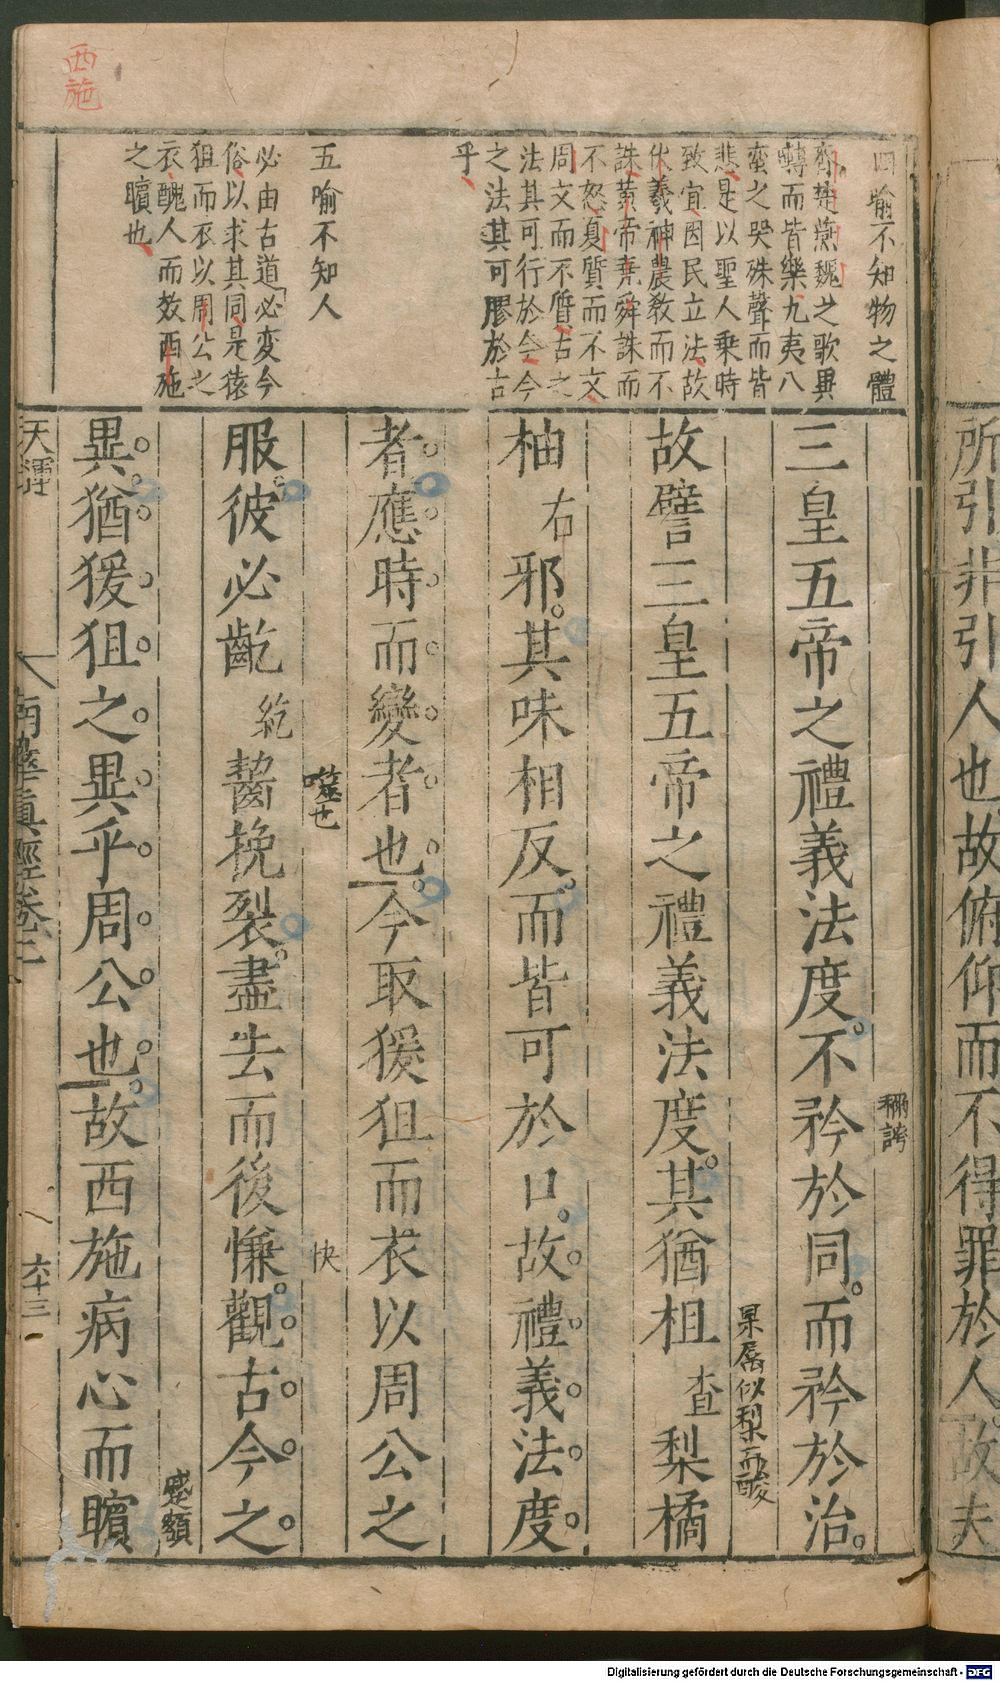 所引非引人也故俯仰而不得罪於人故夫
西施
四喻不知物之體
齊楚燕魏之歌異
轉而皆樂九夷八
蠻之哭殊聲而皆
悲是以聖人乗時
致宜因民立法故
伏羲神農教而不
誅黄帝堯舜誅而
不怒夏質而不文
周文而不質古之
法其可行於今今
之法其可膠於古
乎
五喻不知人
必由古道必変今
俗以求其同是猿
狙而衣以周公之
衣醜人而效西施
之矉也
三皇五帝之禮義法度不矜於同而矜於治
稱誇
故譬三皇五帝之禮義法度其猶柤查梨橘
果属似梨而酸
柚右邪其味相反而皆可於口故禮義法度
者應時而變者也今取猨狙而衣以周公之
服彼必齕紇齧挽裂盡去而後慊觀古今之
噬也
快
異猶猨狙之異乎周公也故西施病心而矉
蹙額
天運
南華真經卷二
六十三
Digitalisierung gefördert durch die Deutsche Forschungsgemeinschaft - DFG